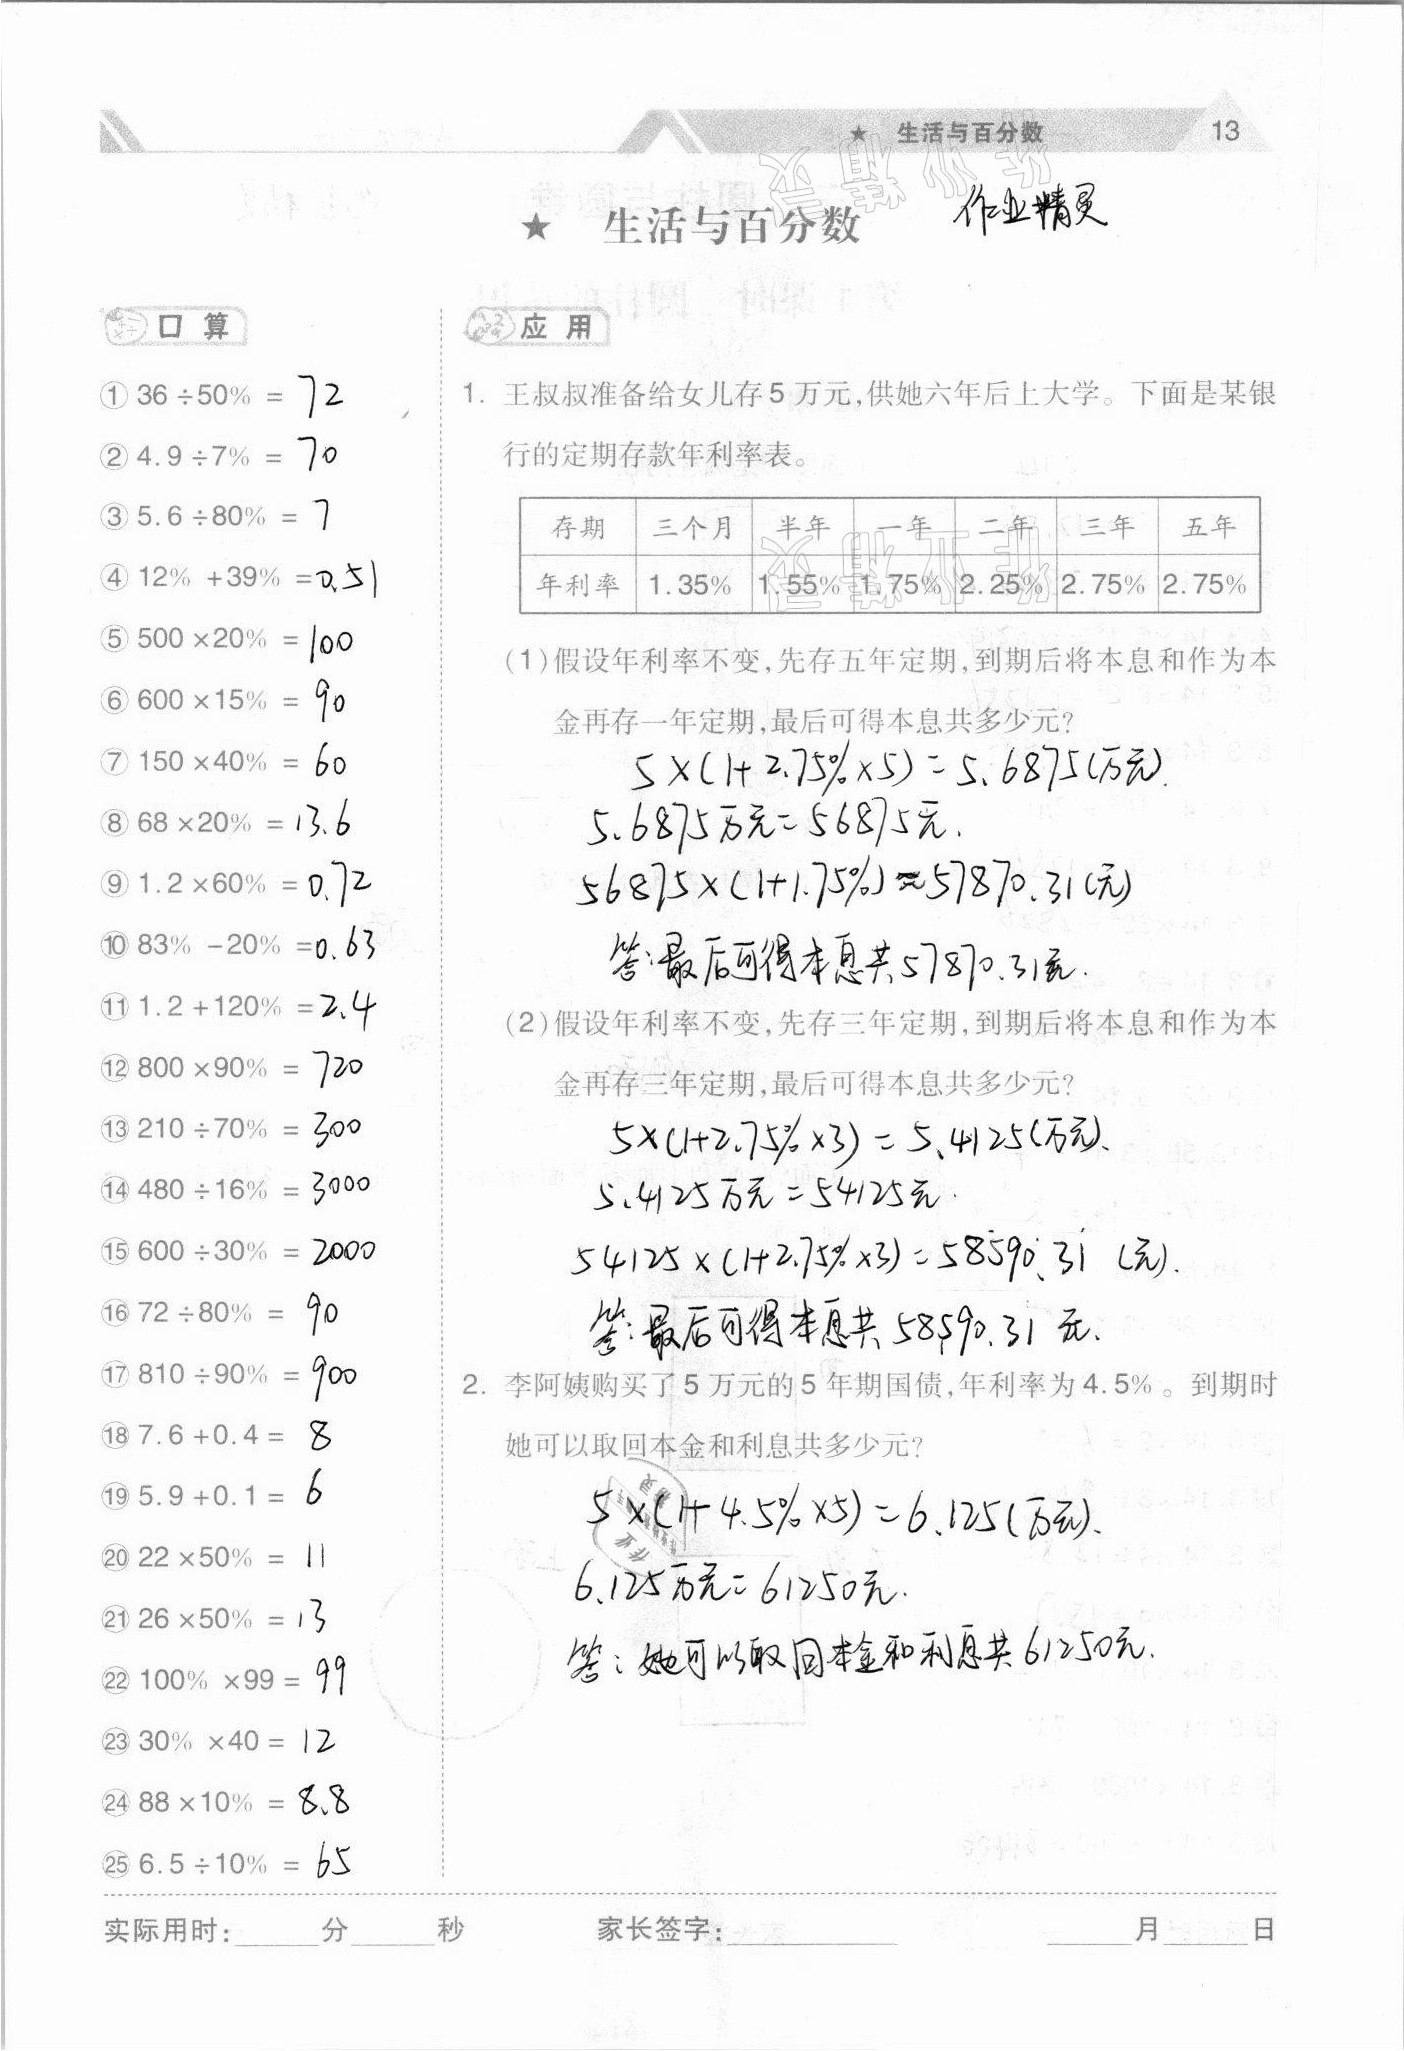 ★ 生活与百分数 13
★ 生活与百分数 作业精灵
口算
① 36÷50% = 72
② 4.9÷7% = 70
③ 5.6÷80% = 7
④ 12% +39% =0.51
⑤ 500×20% = 100
⑥ 600×15% = 90
⑦ 150×40% = 60
⑧ 68×20% = 13.6
⑨ 1.2×60% = 0.72
⑩ 83% -20% =0.63
⑪ 1.2+120% =2.4
⑫ 800×90% = 720
⑬ 210÷70% = 300
⑭ 480÷16% = 3000
⑮ 600÷30% = 2000
⑯ 72÷80% = 90
⑰ 810÷90% = 900
⑱ 7.6+0.4= 8
⑲ 5.9+0.1= 6
⑳ 22×50% = 11
㉑ 26×50% = 13
㉒ 100% ×99= 99
㉓ 30% ×40= 12
㉔ 88×10% = 8.8
㉕ 6.5÷10% = 65
应用
1. 王叔叔准备给女儿存5万元,供她六年后上大学。下面是某银
行的定期存款年利率表。
存期 三个月 半年 一年 二年 三年 五年
年利率 1.35% 1.55% 1.75% 2.25% 2.75% 2.75%
(1)假设年利率不变,先存五年定期,到期后将本息和作为本
金再存一年定期,最后可得本息共多少元?
5×(1+2.75%×5)=5.6875(万元).
5.6875万元=56875元.
56875×(1+1.75%)≈57870.31(元)
答:最后可得本息共57870.31元.
(2)假设年利率不变,先存三年定期,到期后将本息和作为本
金再存三年定期,最后可得本息共多少元?
5×(1+2.75%×3)=5.4125(万元).
5.4125万元=54125元.
54125×(1+2.75%×3)=58590.31 (元).
答:最后可得本息共58590.31元.
2. 李阿姨购买了5万元的5年期国债,年利率为4.5%。到期时
她可以取回本金和利息共多少元?
5×(1+4.5%×5)=6.125(万元).
6.125万元=61250元.
答:她可以取回本金和利息共61250元.
实际用时:______分______秒 家长签字:____________ ______月______日
作业精灵
作业精灵